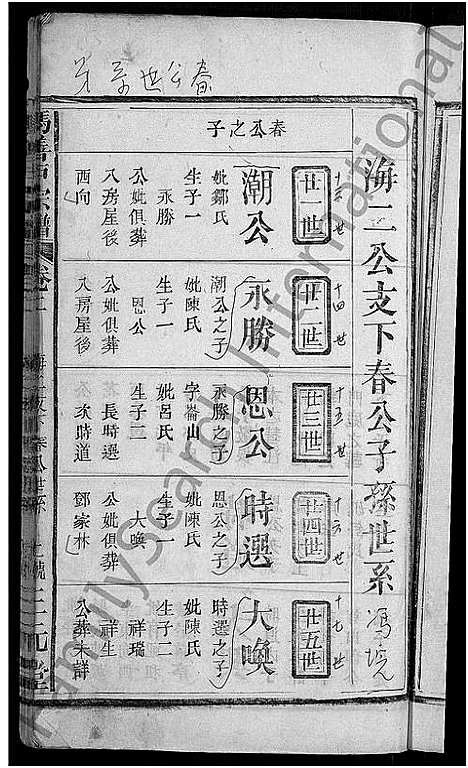 海二公支下春公子孫世系
馮境
春公世系
春公之子
十三世
廿一世
潮公
妣鄒氏
生子一
永勝
公妣俱葬
八房屋後
西向
十四世
廿二世
永勝
潮公之子
妣陳氏
生子一
恩公
公妣俱葬
八房屋後
十五世
廿三世
恩公
永勝之子
字崙山
妣呂氏
生子二
長時選
次時道
十六世
廿四世
時選
恩公之子
妣陳氏
生子一
大喚
公妣俱葬
鄧家林
十七世
廿五世
大喚
時選之子
妣陳氏
生子二
祥瑞
祥生
公葬未詳
卷二
三元堂
FamilySearch International